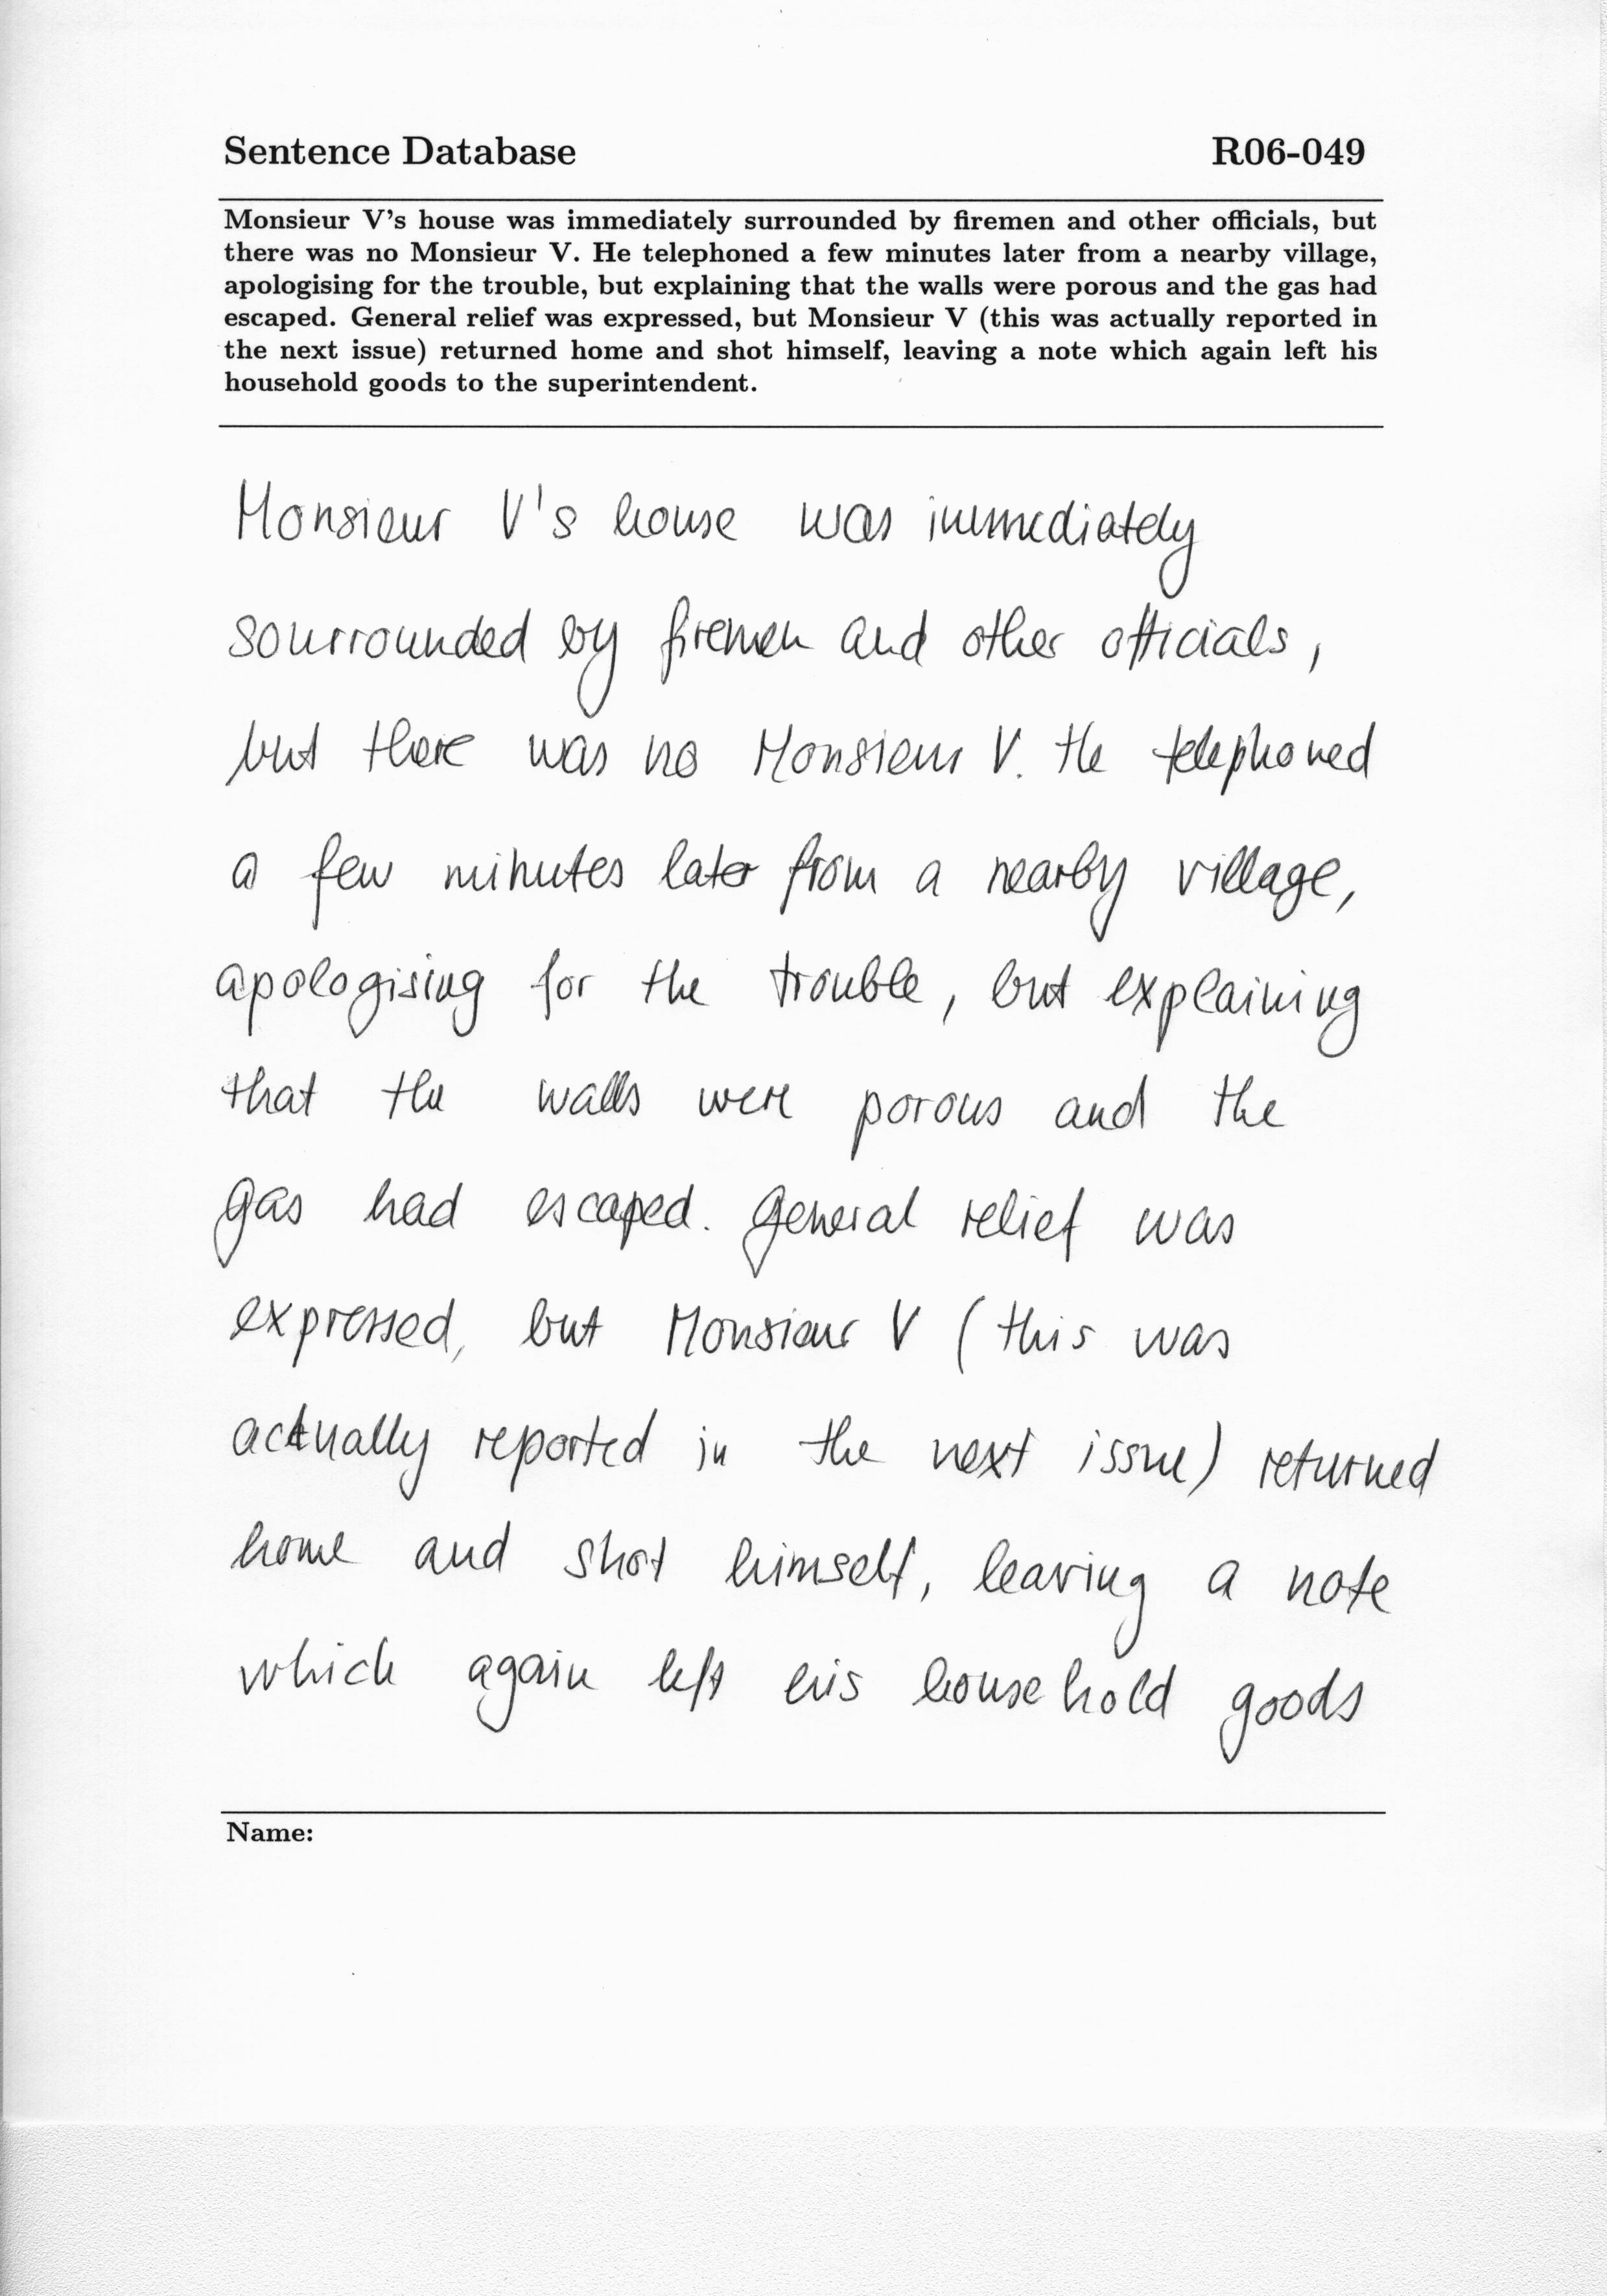 Sentence Database R06-049
Monsieur V's house was immediately surrounded by firemen and other officials, but
there was no Monsieur V. He telephoned a few minutes later from a nearby village,
apologising for the trouble, but explaining that the walls were porous and the gas had
escaped. General relief was expressed, but Monsieur V (this was actually reported in
the next issue) returned home and shot himself, leaving a note which again left his
household goods to the superintendent.
Monsieur V's house was immediately
sourrounded by firemen and other officials,
but there was no Monsieur V. He telephoned
a few minutes later from a nearby village,
apologising for the trouble, but explaining
that the walls were porous and the
gas had escaped. General relief was
expressed, but Monsieur V (this was
actually reported in the next issue) returned
home and shot himself, leaving a note
which again left his household goods
Name: